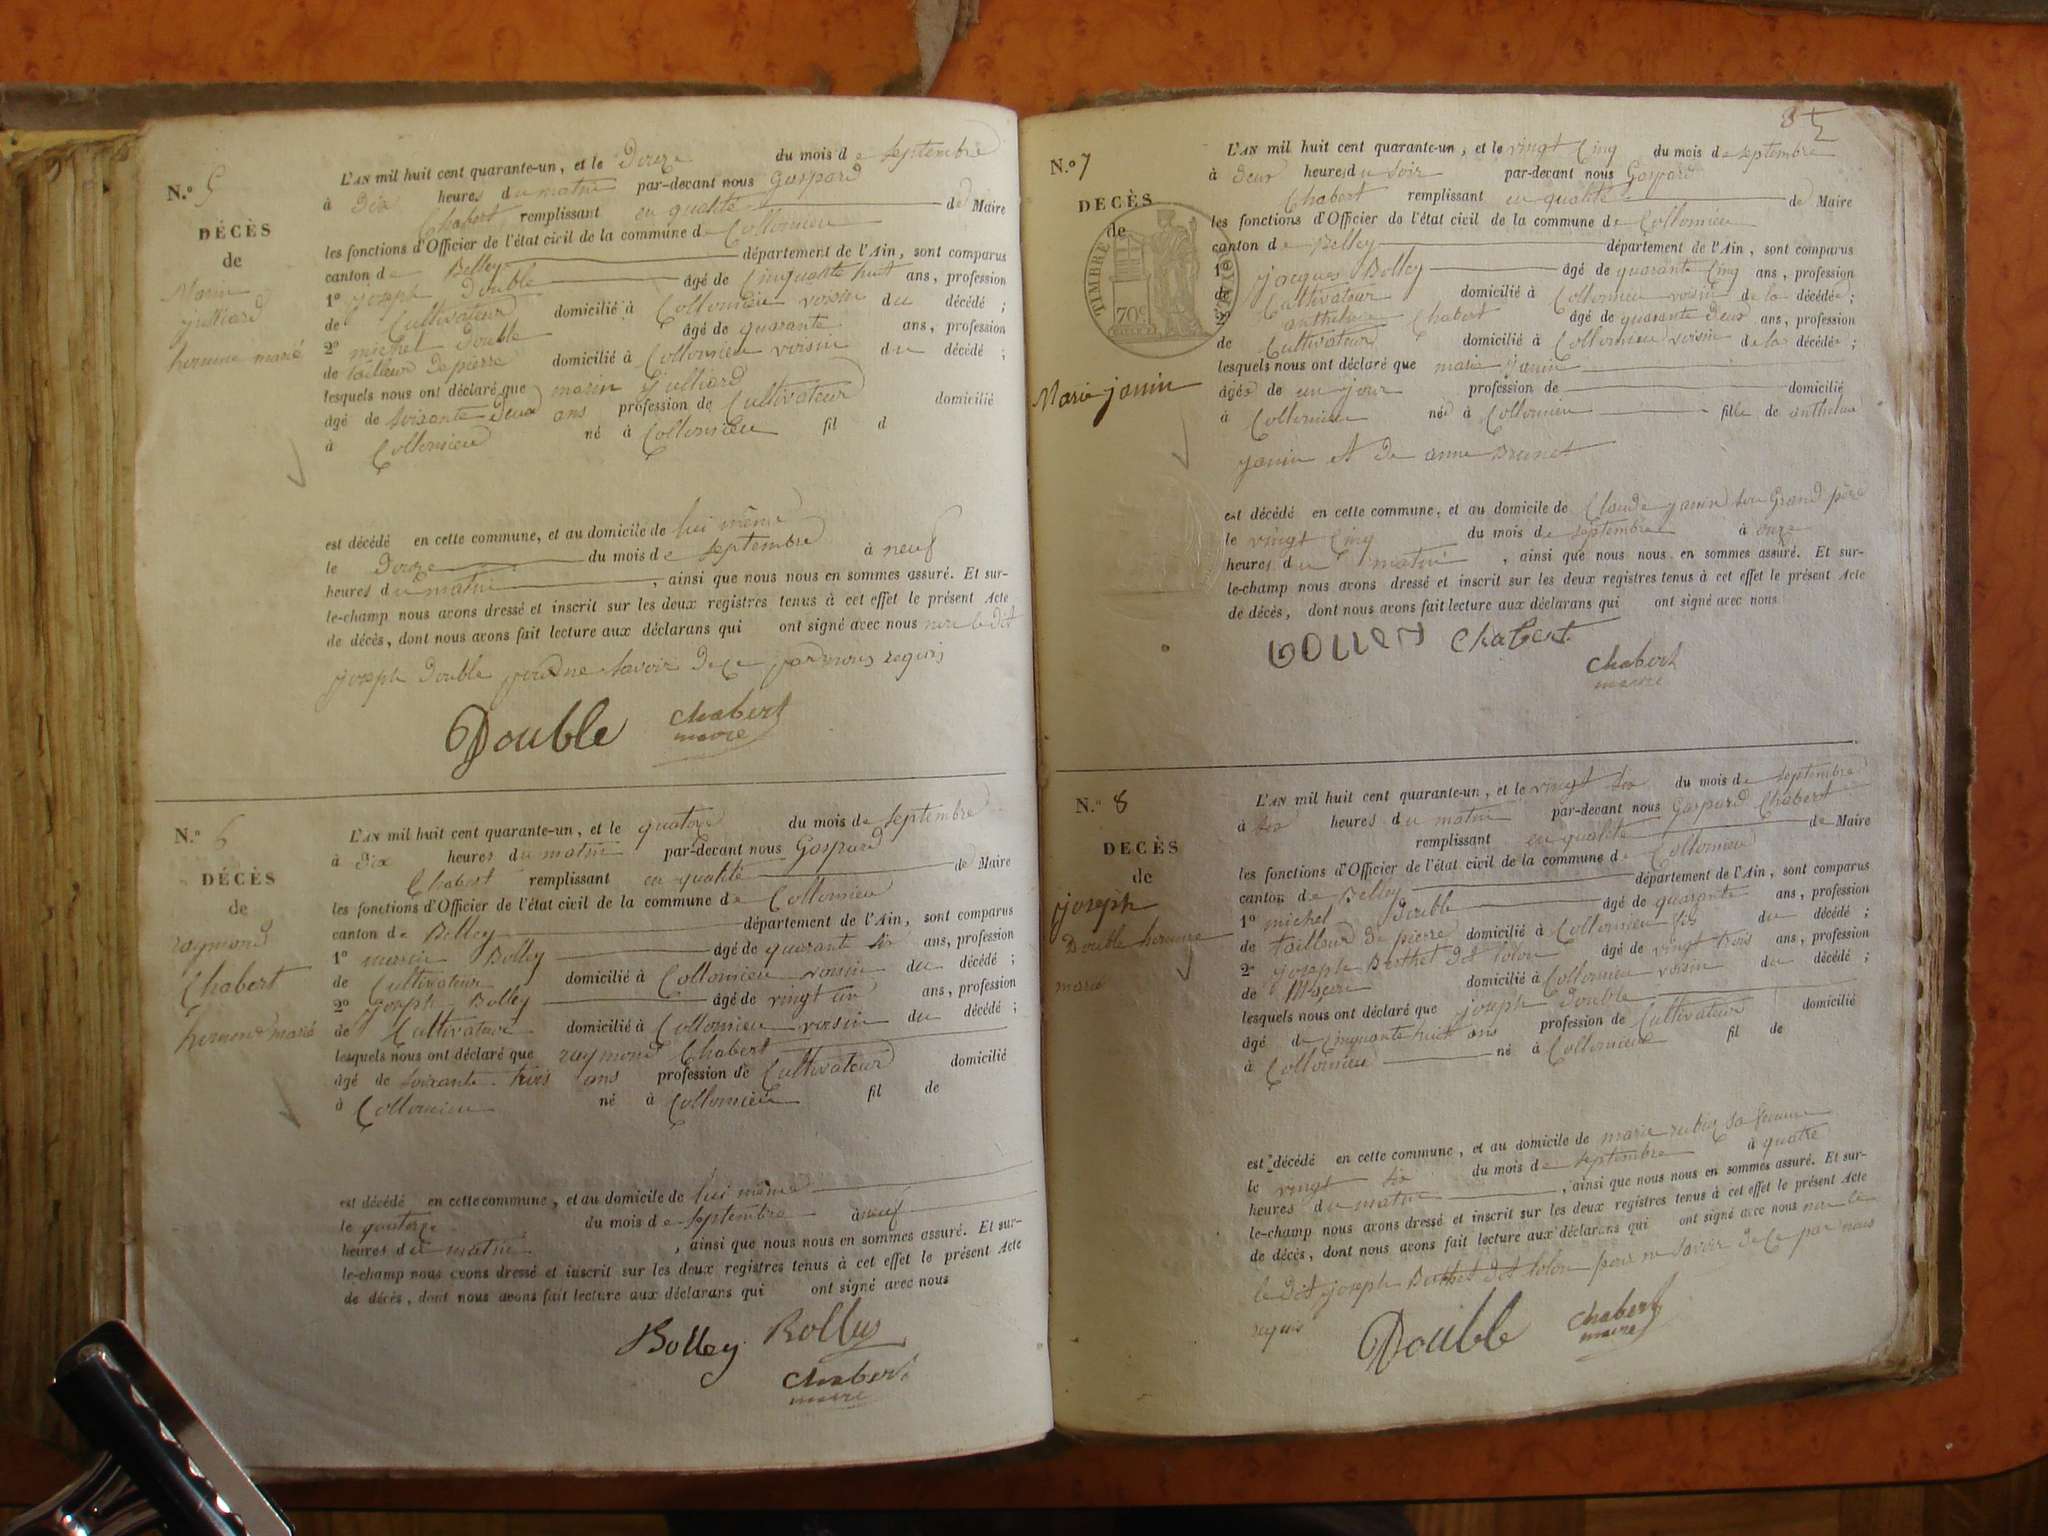 N.º 5
DÉCÈS
de
Marin
Julliard
homme marié
L'AN mil huit cent quarante-un, et le Douze du mois de septembre
à Dix heures du matin par-devant nous Gaspard
Chabert remplissant en qualité de Maire
les fonctions d'Officier de l'état civil de la commune de Collomieu
canton de Belley département de l'Ain, sont comparus
1º joseph Double âgé de Cinquante huit ans, profession
de Cultivateur domicilié à Collomieu voisin du décédé;
2º michel Double âgé de quarante ans, profession
de tailleur de pierre domicilié à Collomieu voisin du décédé;
lesquels nous ont déclaré que marin Julliard
âgé de soixante deux ans profession de Cultivateur domicilié
à Collomieu né à Collomieu fil d
est décédé en cette commune, et au domicile de lui même
le Douze du mois de septembre à neuf
heures du matin, ainsi que nous nous en sommes assuré. Et sur-
le-champ nous avons dressé et inscrit sur les deux registres tenus à cet effet le présent Acte
de décès, dont nous avons fait lecture aux déclarans qui ont signé avec nous non le dit
joseph Double pour ne savoir de ce par nous requis
Double Chabert
maire
N.º 6
DÉCÈS
de
raymond
Chabert
homme marié
L'AN mil huit cent quarante-un, et le quatorze du mois de septembre
à dix heures du matin par-devant nous Gaspard
Chabert remplissant en qualité de Maire
les fonctions d'Officier de l'état civil de la commune de Collomieu
canton de Belley département de l'Ain, sont comparus
1º marin Bolley âgé de quarante six ans, profession
de Cultivateur domicilié à Collomieu voisin du décédé;
2º joseph Bolley âgé de vingt ans, profession
de Cultivateur domicilié à Collomieu voisin du décédé;
lesquels nous ont déclaré que raymond Chabert
âgé de soixante trois ans profession de Cultivateur domicilié
à Collomieu né à Collomieu fil de
est décédé en cette commune, et au domicile de lui même
le quatorze du mois de septembre à neuf
heures du matin, ainsi que nous nous en sommes assuré. Et sur-
le-champ nous avons dressé et inscrit sur les deux registres tenus à cet effet le présent Acte
de décès, dont nous avons fait lecture aux déclarans qui ont signé avec nous
Bolley Bolley
Chabert
maire
N.º 7
DECÈS
de
TIMBRE
70c
Marie janin
L'AN mil huit cent quarante-un, et le vingt Cinq du mois de septembre
à deux heures du soir par-devant nous Gaspard
Chabert remplissant en qualité de Maire
les fonctions d'Officier de l'état civil de la commune de Collomieu
canton de Belley département de l'Ain, sont comparus
1º jacques Bolley âgé de quarante Cinq ans, profession
de Cultivateur domicilié à Collomieu voisin de la décédée;
anthelme Chabert âgé de quarante deux ans, profession
de Cultivateur domicilié à Collomieu voisin de la décédée;
lesquels nous ont déclaré que marie Janin
âgée de un jour profession de domicilié
à Collomieu née à Collomieu fille de anthelme
janin et de anne Brunet
est décédé en cette commune, et au domicile de Claude janin son Grand père
le vingt Cinq du mois de septembre à onze
heures du matin, ainsi que nous nous en sommes assuré. Et sur-
le-champ nous avons dressé et inscrit sur les deux registres tenus à cet effet le présent Acte
de décès, dont nous avons fait lecture aux déclarans qui ont signé avec nous
Chabert
Chabert
maire
N.º 8
DECÈS
de
joseph
Double homme
marié
L'AN mil huit cent quarante-un, et le vingt six du mois de septembre
à six heures du matin par-devant nous Gaspard Chabert
remplissant en qualité de Maire
les fonctions d'Officier de l'état civil de la commune de Collomieu
canton de Belley département de l'Ain, sont comparus
1º michel Double âgé de quarante ans, profession
de tailleur de pierre domicilié à Collomieu fils du décédé;
2º joseph Berthet dit lolon âgé de vingt trois ans, profession
de Maçon domicilié à Collomieu voisin du décédé;
lesquels nous ont déclaré que joseph Double
âgé de Cinquante huit ans profession de Cultivateur domicilié
à Collomieu né à Collomieu fil de
est décédé en cette commune, et au domicile de marie sa femme
le vingt six du mois de septembre à quatre
heures du matin, ainsi que nous nous en sommes assuré. Et sur-
le-champ nous avons dressé et inscrit sur les deux registres tenus à cet effet le présent Acte
de décès, dont nous avons fait lecture aux déclarans qui ont signé avec nous non le
le dit joseph Berthet dit lolon pour ne savoir de ce par nous
requis
Double Chabert
maire